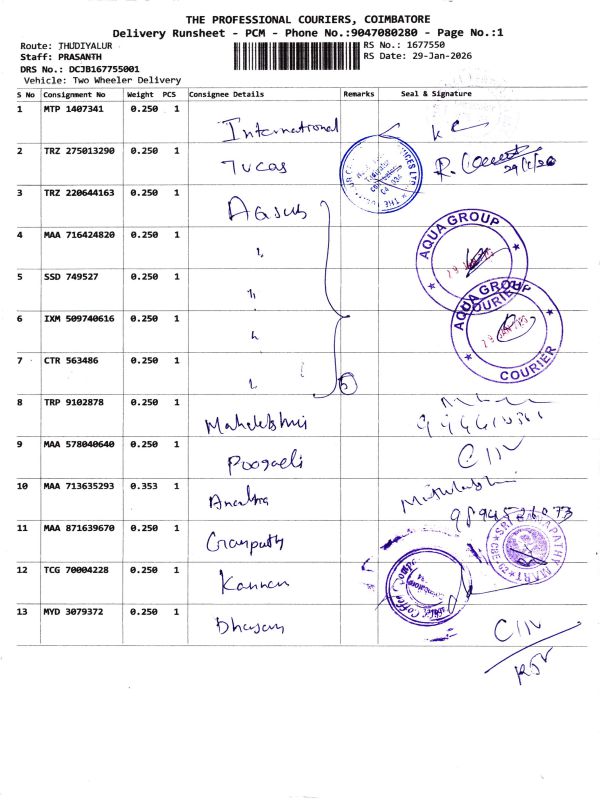 THE PROFESSIONAL COURIERS, COIMBATORE
Delivery Runsheet - PCM - Phone No.:9047080280 - Page No.:1
Route: THUDIYALUR
Staff: PRASANTH
DRS No.: DCJB167755001
Vehicle: Two Wheeler Delivery
RS No.: 1677550
RS Date: 29-Jan-2026
S No Consignment No Weight PCS Consignee Details Remarks Seal & Signature
1 MTP 1407341 0.250 1 International
2 TRZ 275013290 0.250 1 Tucas
3 TRZ 220644163 0.250 1
4 MAA 716424820 0.250 1 "
AQUA GROUP
COURIER
5 SSD 749527 0.250 1 "
6 IXM 509740616 0.250 1 "
AQUA GROUP
COURIER
7 CTR 563486 0.250 1 " 5
8 TRP 9102878 0.250 1
9 MAA 578040640 0.250 1
10 MAA 713635293 0.353 1
11 MAA 871639670 0.250 1
SRI GANAPATHY MART
12 TCG 70004228 0.250 1 Kannan
13 MYD 3079372 0.250 1